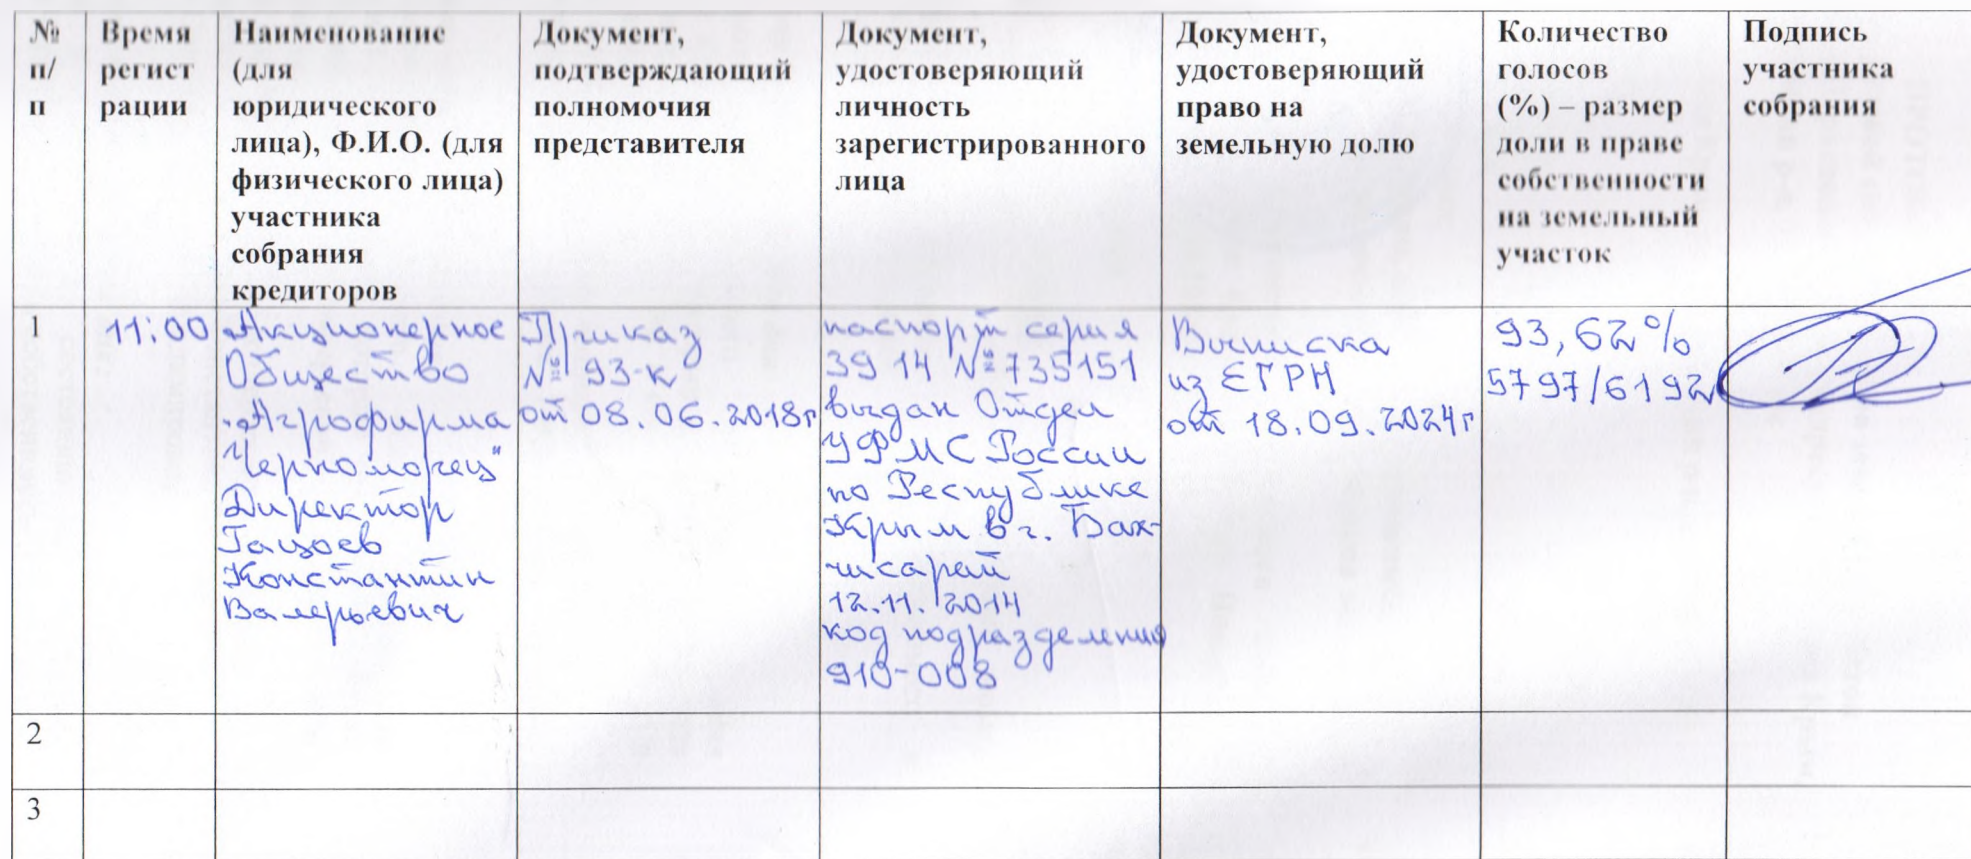 №
п/
п
Время
регист
рации
Наименование
(для
юридического
лица), Ф.И.О. (для
физического лица)
участника
собрания
кредиторов
Документ,
подтверждающий
полномочия
представителя
Документ,
удостоверяющий
личность
зарегистрированного
лица
Документ,
удостоверяющий
право на
земельную долю
Количество
голосов
(%) – размер
доли в праве
собственности
на земельный
участок
Подпись
участника
собрания
1
11:00
Акционерное
Общество
"Агрофирма
Черноморец"
Директор
Гацоев
Константин
Валерьевич
Приказ
№ 93-к
от 08.06.2018г
паспорт серия
39 14 №735151
выдан Отдел
УФМС России
по Республике
Крым в г. Бах-
чисарей
12.11.2014
код подразделения
910-008
Выписка
из ЕГРН
от 18.09.2024г
93,62%
5797/6192
2
3